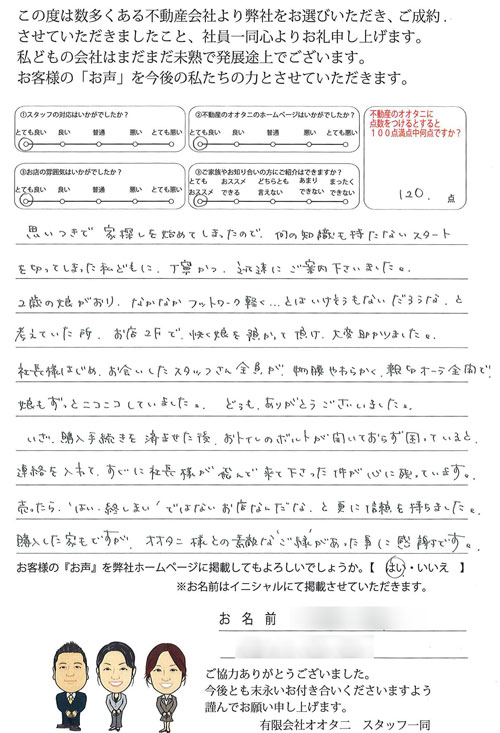 この度は数多くある不動産会社より弊社をお選びいただき、ご成約
させていただきましたこと、社員一同心よりお礼申し上げます。
私どもの会社はまだまだ未熟で発展途上でございます。
お客様の「お声」を今後の私たちの力とさせていただきます。
①スタッフの対応はいかがでしたか?
とても良い 良い 普通 悪い とても悪い
②不動産のオオタニのホームページはいかがでしたか?
とても良い 良い 普通 悪い とても悪い
③お店の雰囲気はいかがでしたか?
とても良い 良い 普通 悪い とても悪い
③ご家族やお知り合いの方にご紹介はできますか?
とても おススメ どちらとも あまり まったく
おススメ できる 言えない できない できない
不動産のオオタニに
点数をつけるとすると
100点満点中何点ですか?
120. 点
思いつきで 家探しを始めてしまったので、何の知識も持たないスタート
を切ってしまった私どもに、丁寧かつ、迅速に ご案内下さいました。
2歳の娘がおり、なかなか フットワーク軽く…とはいけそうもないだろうな、と
考えていた所、お店2Fで、快く娘を預かって頂け、大変助かりました。
社長様はじめ、お会いしたスタッフさん 全員が、物腰やわらかく、親切オーラ全開で、
娘もずっとニコニコしていました。 どうも、ありがとうございました。
いざ、購入手続きを済ませた後、おトイレのボルトが開いておらず困っていると、
連絡を入れて、すぐに社長様が飛んで来て下さった件が心に残っています。
売ったら、'はい、終しまい'ではないお店なんだな、と更に信頼を持ちました。
購入した家もですが、オオタニ様との素敵な'ご縁'があった事に感謝です。
お客様の『お声』を弊社ホームページに掲載してもよろしいでしょうか。【 はい・いいえ 】
※お名前はイニシャルにて掲載させていただきます。
お 名 前
ご協力ありがとうございました。
今後とも末永いお付き合いくださいますよう
謹んでお願い申し上げます。
有限会社オオタニ スタッフ一同